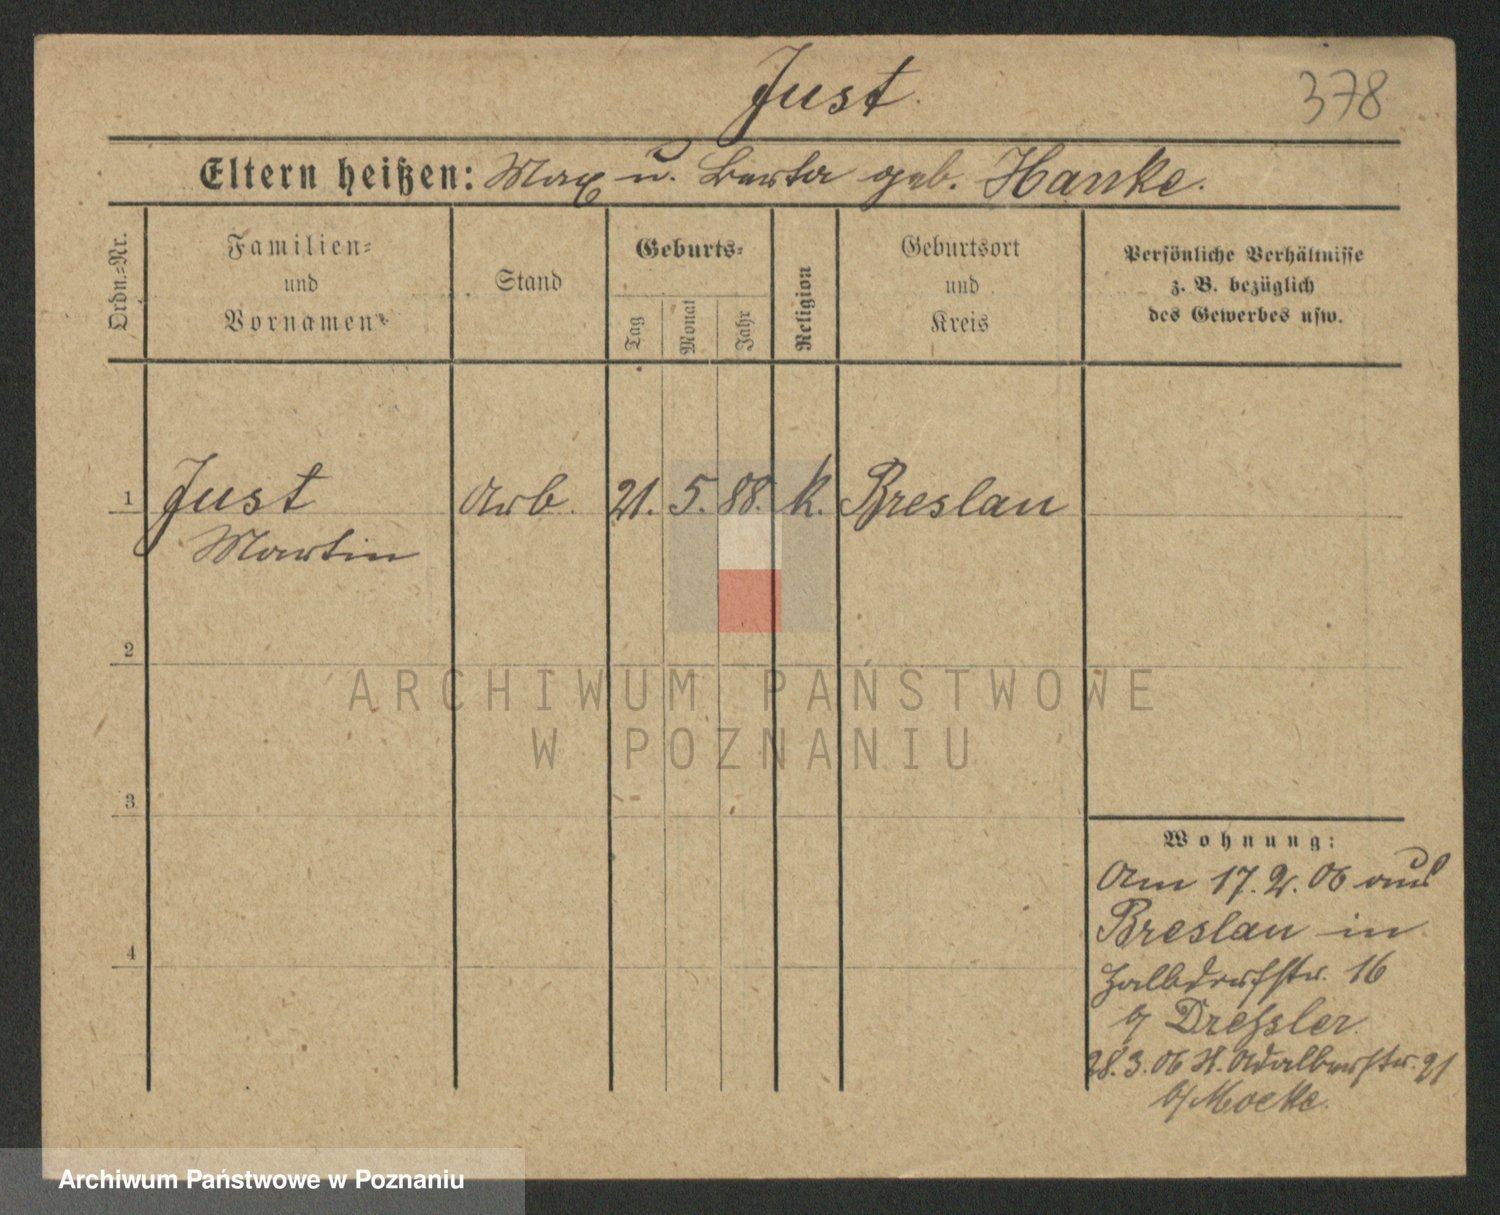 Just.
378
Eltern heißen: Max u. Berta geb. Hanke.
Ordn.=Nr.
Familien=
und
Vornamen
Stand
Geburts=
Tag
Monat
Jahr
Religion
Geburtsort
und
Kreis
Persönliche Verhältnisse
z. B. bezüglich
des Gewerbes usw.
1 Just Arb. 21. 5. 88. k. Breslau
Martin
2
ARCHIWUM PAŃSTWOWE
W POZNANIU
3
Wohnung:
Am 17.2.06 aus
Breslau in
Halbdorfstr. 16
b/ Dreßler.
4
28.3.06 St. Adalbertstr. 21
b/ Mocke.
Archiwum Państwowe w Poznaniu